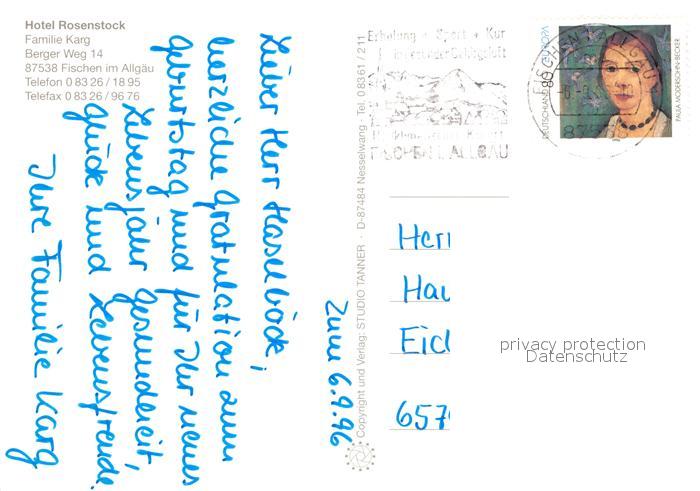 Hotel Rosenstock
Familie Karg
Berger Weg 14
87538 Fischen im Allgäu
Telefon 0 83 26 / 18 95
Telefax 0 83 26 / 96 76
Zum 6.9.96
Lieber Herr Haselböck,
herzliche Gratulation zum
Geburtstag und für Ihr neues
Lebensjahr Gesundheit,
Glück und Lebensfreude.
Ihre Familie Karg
Copyright und Verlag: STUDIO TANNER · D-87484 Nesselwang · Tel. 0 83 61 / 2 11
Erholung + Sport + Kur
FISCHEN I. ALLGÄU
DEUTSCHLAND 80 EUROPA
PAULA MODERSOHN-BECKER
Herr
Hau
Eic
657
privacy protection
Datenschutz